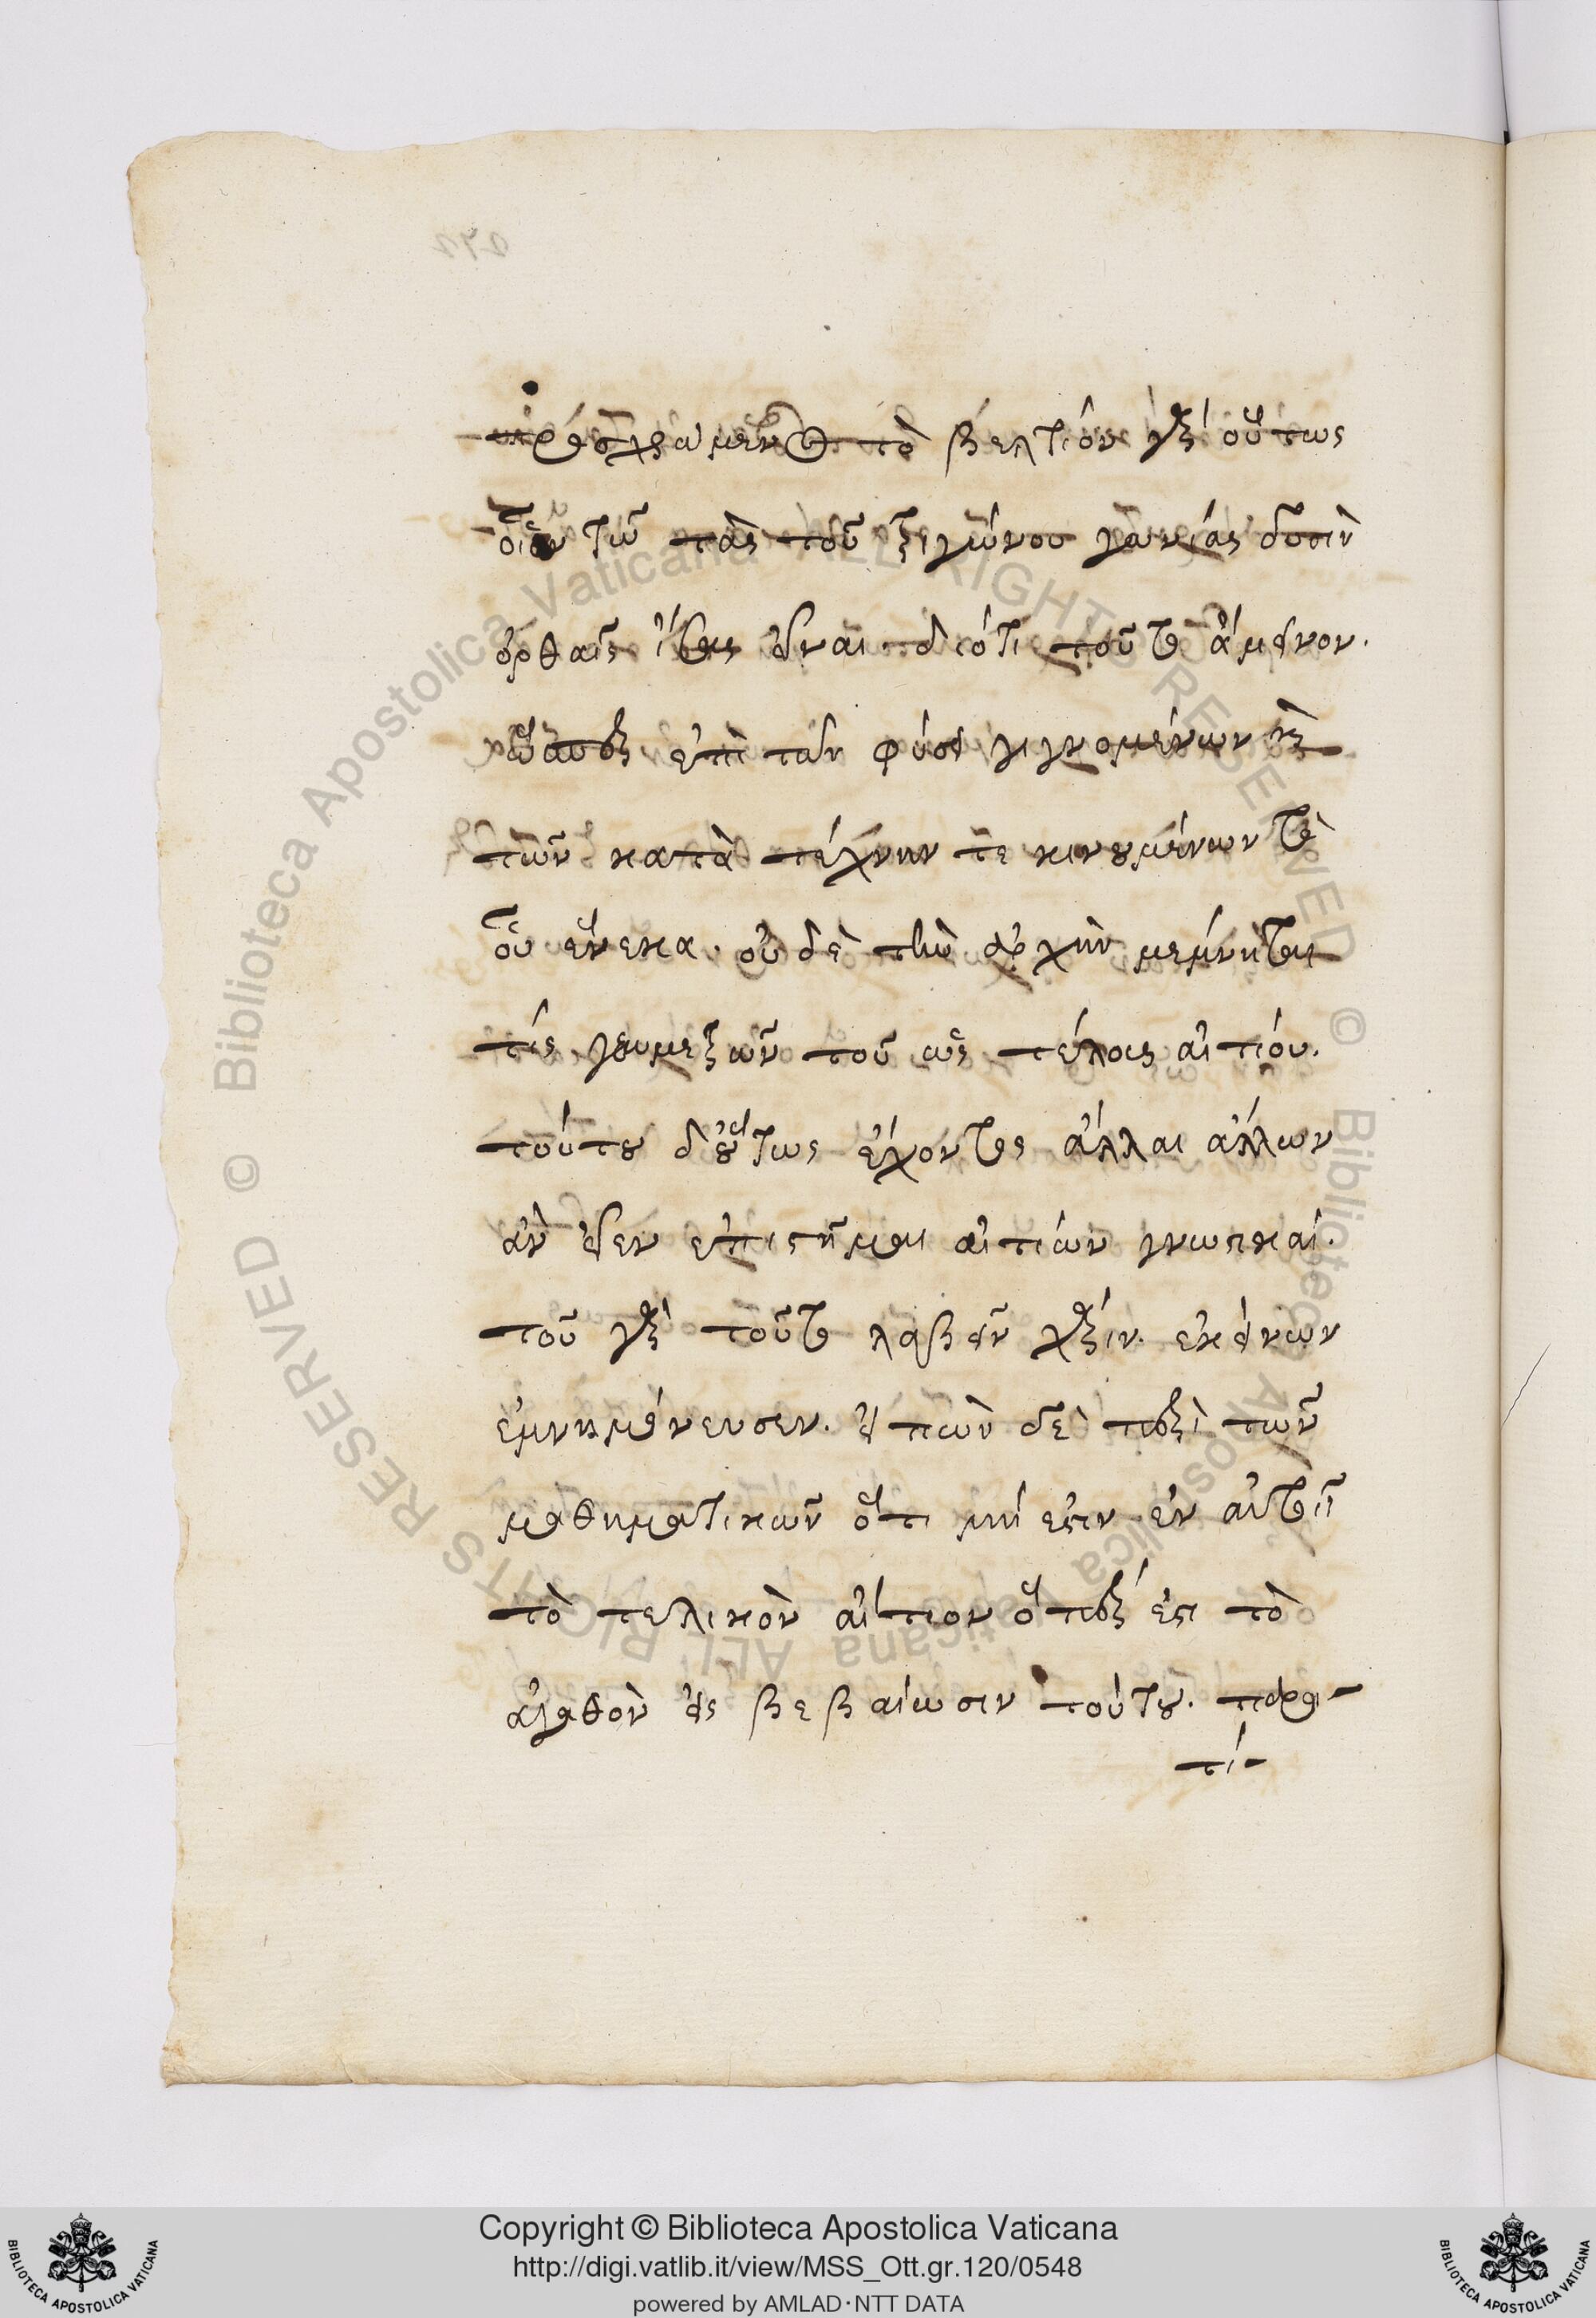 τὸ βέλτιον γὰρ οὕτως
οἷον τῶ τὰς τοῦ τριγώνου γωνίας δυσὶν
ὀρθαῖς ἴσας εἶναι. διότι τοῦτο ἄμεινον.
ὥσπερ ἐπὶ τῶν φύσει γιγνομένων καὶ
τῶν κατὰ τέχνην τε κινουμένων τὸ
οὗ ἕνεκα. οὐδὲ τὴν ἀρχὴν μέμνηται
τίς γεωμετρῶν τοῦ ὡς τέλους αἰτίου.
τούτου δ' οὕτως ἔχοντος ἄλλαι ἄλλων
ἂν εἶεν ἐπιστῆμαι αἰτίων γνωστικαί.
τοῦ γὰρ τοῦτο λαβεῖν χάριν. ἐκείνων
ἐμνημόνευσεν. εἰπὼν δὲ περὶ τῶν
μαθηματικῶν ὅτι μή ἐστιν ἐν αὐτοῖς
τὸ τελικὸν αἴτιον ὅπερ ἐστὶ τὸ
ἀγαθὸν εἰς βεβαίωσιν τούτου. παρα-
τί-
Copyright © Biblioteca Apostolica Vaticana
http://digi.vatlib.it/view/MSS_Ott.gr.120/0548
powered by AMLAD·NTT DATA
BIBLIOTECA APOSTOLICA VATICANA
BIBLIOTECA APOSTOLICA VATICANA
© Biblioteca Apostolica Vaticana ALL RIGHTS RESERVED © Biblioteca Apostolica Vaticana ALL RIGHTS RESERVED